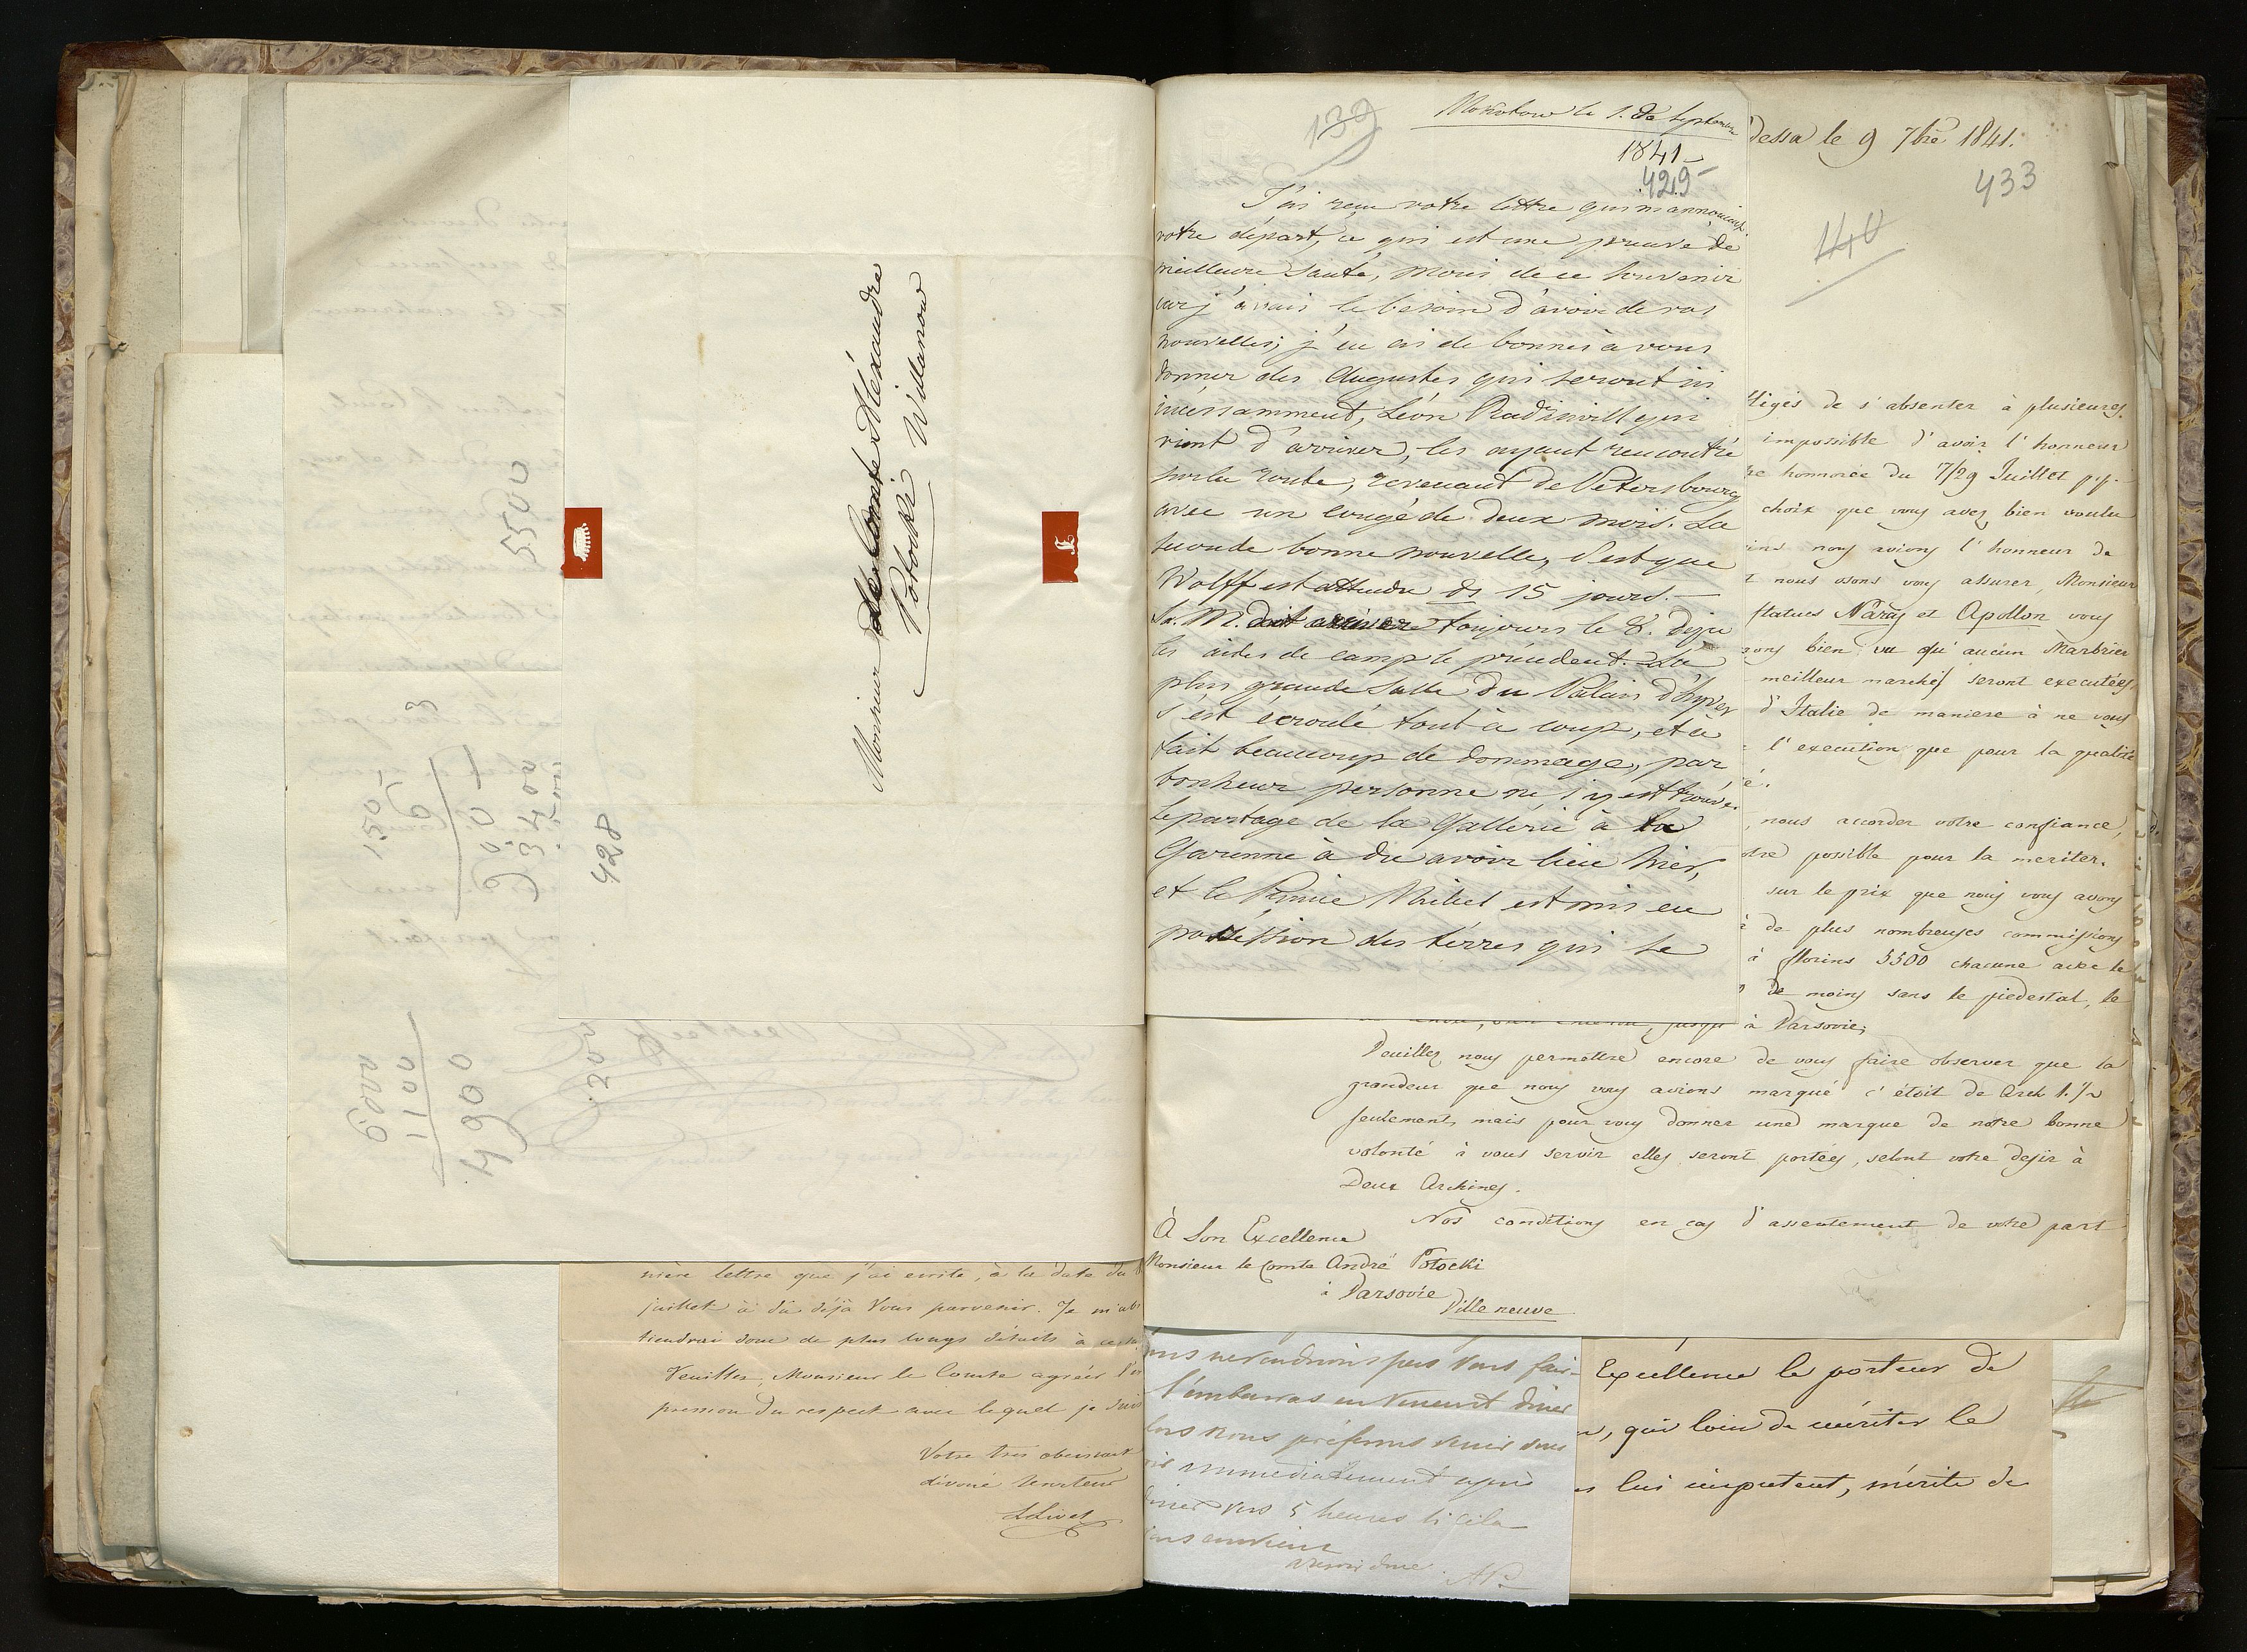 Monsieur le Comte Aléxandre
Potocki Willanow
428
5500
3
150
6
900
3400
6000
1100
4900
200
nière lettre que j'ai ecrite, à la date du
juillet à dû déjà Vous parvenir. Je m'abs
tiendrai donc de plus longs détails à ce su
Veuillez, Monsieur le Comte agréer l'ex
pression du respect avec lequel je suis
Votre très obeissant
dévoué serviteur
139
Mokotow le 1. de Septembre
1841-
429
J'ai reçue votre lettre qui m'annonceait
votre départ, ce qui est une preuve de
meilleure santé, Merci de ce souvenir
car j'avais le besoin d'avoir de vos
nouvelles; j'en ais de bonnes à vous
donner des Augustes qui seront ici
incessamment, Léon Radziwill qui
vient d'arriver, les ayant rencontré
sur la route, revenant de Petersbourg
avec un congé de deux mois. La
seconde bonne nouvelle, c'est que
Wolff est attendu ds 15 jours.-
Sa. M. doit arriver toujours le 8. deja
les aides de camp le précedent. La
plus grande Salle du Palais d'hyver
s'est écroulé tout à coup, et à
fait beaucoup de dommage, par
bonheur personne ne s'y est trouvé.
Le partage de la Gallerie à la
Garenne à du avoir lieu hier,
et le Prince Michel est mis en
possession des terres qui se
dessa le 9 7bre 1841.
433
140
bligés de s'absenter à plusieurs
impossible d'avoir l'honneur
re honnorée du 7/29 Juillet p.p.
choix que vous avez bien voulu
ins nous avions l'honneur de
t nous osons vous assurer, Monsieur
statues Narcis et Apollon vous
rons bien vu qu'aucun Marbrier
meilleur marché, seront executées
d'Italie de maniere à ne vous
l'execution que pour la qualité
é.
, nous accorder votre confiance,
otre possible pour la meriter.
sur le prix que nous vous avons
de plus nombreuses commissions
à florins 5500 chacune avec le
de moins sans le piedestal, le
jusqu'à Varsovie;
Veuillez nous permettre encore de vous faire observer que la
grandeur que nous vous avions marqué c'étoit de Arch 1.1/2
seulement, mais pour vous donner une marque de notre bonne
volonté à vous servir elles seront portées, selont votre desir à
Deux Archines.
Nos conditions en cas d'assentement de votre part
À Son Excellence
Monsieur le Comte André Potocki
à Varsovie
Ville neuve
ous ne voudrions pas Vous faire
l'embarras en Venant diner
lors nous préferons venir vous
immediatement après
diner vers 5 heures si cela
ous convient
AP.
Excellence le porteur de
, qui loin de mériter le
s lui imputent, mérite de